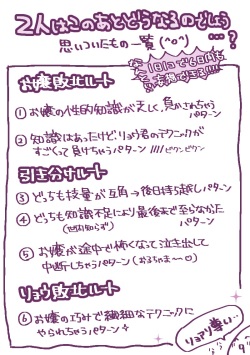 2人はこのあとどうなるのでしょう
…?
思いついたもの一覧(^o^)
1日1コで6日間も
妄想できる!!!!
お嬢敗北ルート
① お嬢の性的知識が乏しく、負かされちゃう
パターン
② 知識はあったけどリョウ君のテクニックが
すごくって負けちゃうパターン////ビクンビクン
引き分けルート
③ どっちも技量が互角→後日持ち越しパターン
④ どっちも知識不足により最後まで至らなかった
(世間知らず) パターン
⑤ お嬢が途中で怖くなって泣き出して
中断しちゃうパターン
リョウ敗北ルート
⑥ お嬢の巧みで繊細なテクニックに
やられちゃうパターン
リョアリ尊い…